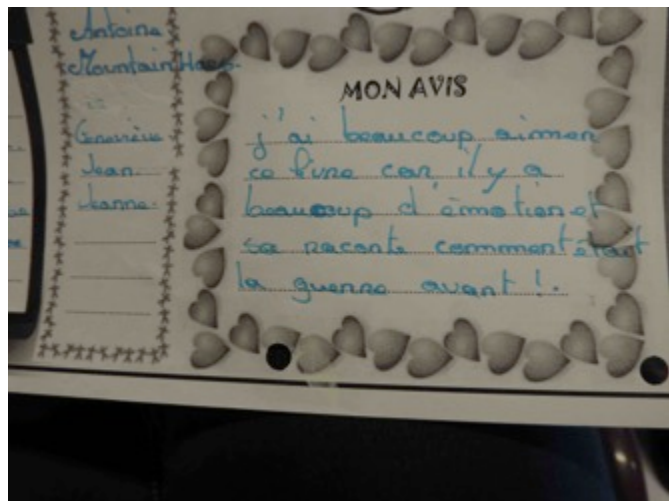 Antoine
Mountain Hars.
Geneviève
Jean.
Jeanne.
MON AVIS
j'ai beaucoup aimer
ce livre car il y a
beaucoup d'émotion et
sa raconte comment était
la guerre avant !.